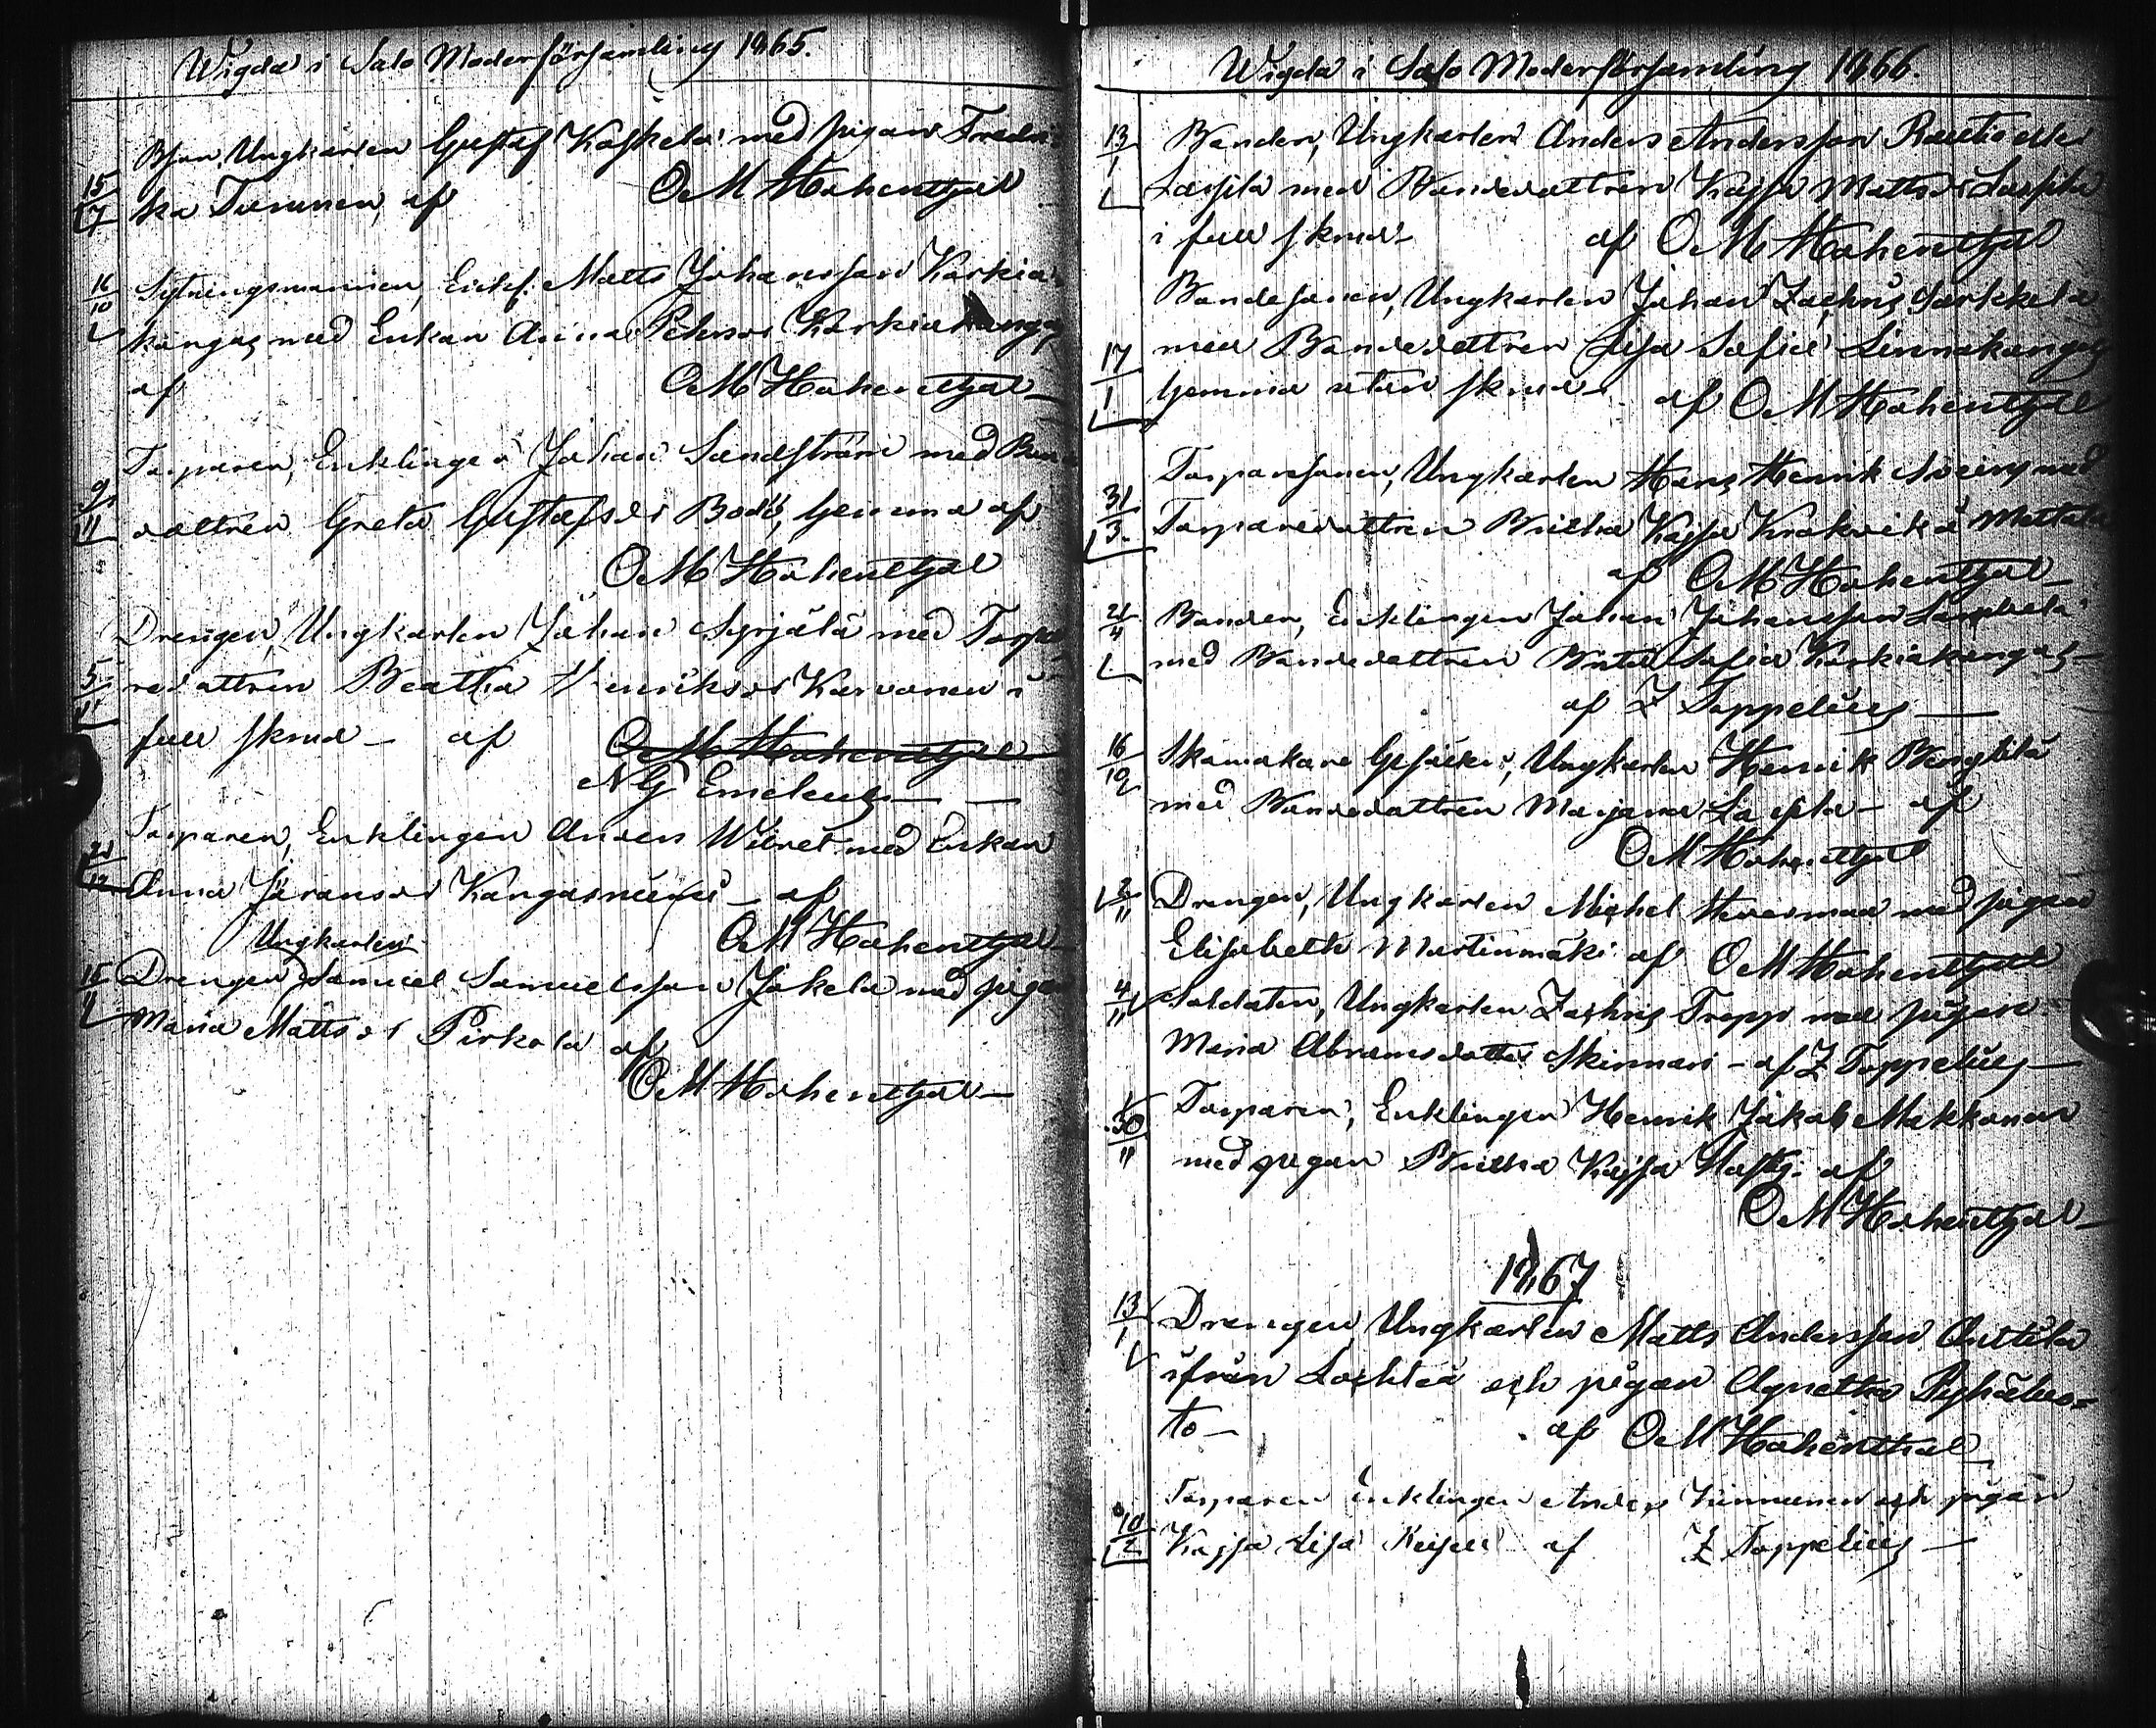 Wigda i Salo Moderförsamling 1865.
15/7 Bson, Ungkarlen Gustaf Koskela med pigan Fredri-
ka Turunen, af OM Hohenthal
16/10 Sytningsmannen, Enkl. Matts Johansson Karkia-
kangas med Enkan Anna Pehrsdr Karkiakangas
af OM Hohenthal
Torparen, Enklingen Johan Sandström med Bon-
9/11 dottren Greta Gustafsdr Bodö, hemma af
OM Hohenthal
Drengen, Ungkarlen Johan Syrjälä med Torpa-
5/11 redottren Beatha Henriksdr Karvonen i
full skrud af OM Hohenthal
NG Emeleus
Torparen, Enklingen Anders Wibret med Enkan
Anna Göransdr Kangasniemi af
Ungkarlen OM Hohenthal
15/11 Drengen Samuel Samuelsson Jokela med pigan
Maria Mattsdr Pirkola af
OM Hohenthal
Wigda i Salo Moderförsamling 1866.
13/1 Bonden, Ungkarlen Anders Andersson Rautio eller
Laspila med Bondedottren Kajsa Mattsdr Laspila
i full skrud af OM Hohenthal
Bondesonen, Ungkarlen Johan Zachris Särkkelä
17/1 med Bondedottren Lisa Sofia Linnakangas
hemma utan skrud af OM Hohenthal
Torparesonen, Ungkarlen Hans Henrik med
31/3 Torparedottren Britha Kajsa Krakvik å Mattala
af OM Hohenthal
21/4 Bonden, Enklingen Johan Johansson
med Bondedottren Brita Sofia Karkiakangas
af Z Toppelius
16/10 Skomakare Gesällen, Ungkarlen Henrik Pengbita
med Bondedottren Marjana Laspila af
OM Hohenthal
2/11 Drengen, Ungkarlen Michel med pigan
Elisabeth Martinmäki af OM Hohenthal
4/11 Soldaten, Ungkarlen Zachris Trapp med pigan
Maria Abramsdotter Skinnari af Z Toppelius
30/11 Torparen, Enklingen Henrik Jakob Makkonen
med pigan Britha Kajsa af
OM Hohenthal
1867
13/1 Drengen Ungkarlen Matts Andersson Anttila
ifrån Lochteå och pigan Agnetha Pyhäluo-
to af OM Hohenthal
Torparen Enklingen Anders Kinnunen och pigan
10/2 Kajsa Lisa af Z Toppelius